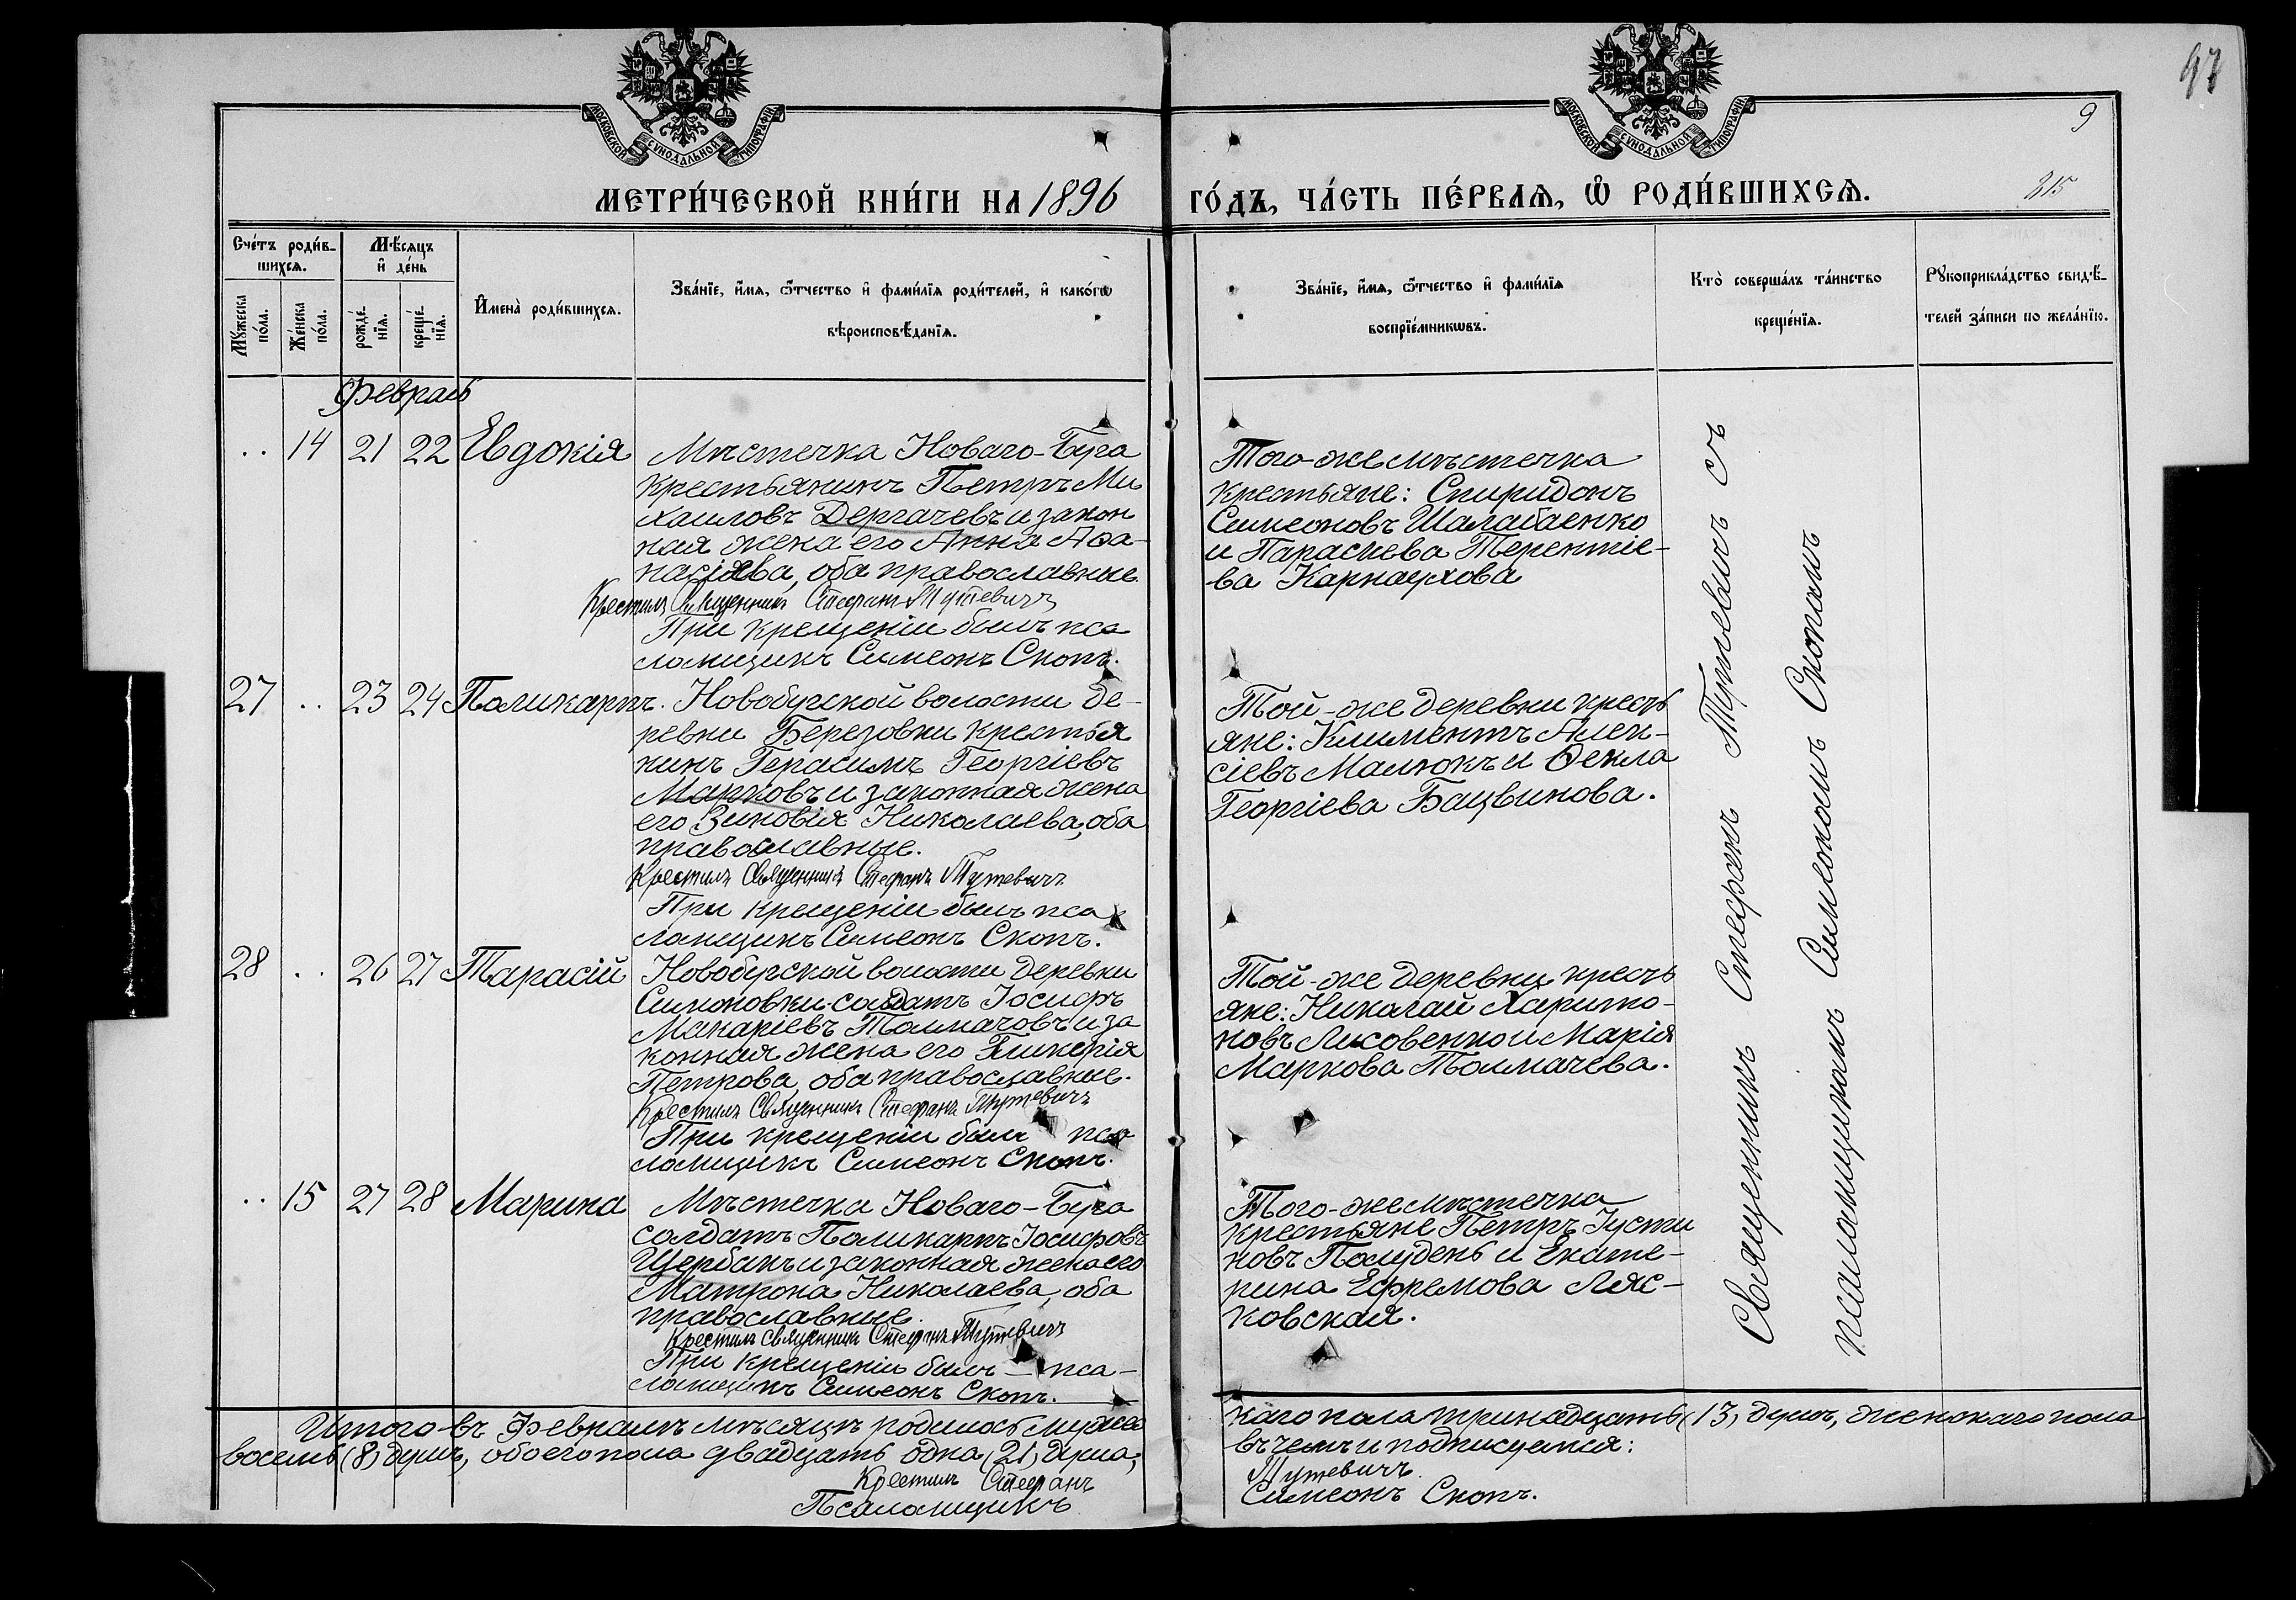 97
9
215
МОСКОВСКОЙ СѴНОДАЛЬНОЙ ТИПОГРАФІИ
МОСКОВСКОЙ СѴНОДАЛЬНОЙ ТИПОГРАФІИ
МЕТРИ́ЧЕСКОЙ КНИ́ГИ НА 1896
ГО́ДЪ, ЧА́СТЬ ПЕ́РВАѦ, Ѡ҆ РОДИ́ВШИХСѦ.
Сче́тъ роди́в-
шихсѧ.
Мѣ́сяцъ
и҆ де́нь
Мꙋ́жеска
по́ла.
Же́нска
по́ла.
рожде́-
нїѧ.
креще́-
нїѧ.
И҆мена̀ роди́вшихсѧ.
Зва́нїе, и҆́мѧ, ѻ҆́тчество и҆ фами́лїѧ роди́телей, и҆ како́гѡ
вѣроисповѣ́данїѧ.
Зва́нїе, и҆́мѧ, ѻ҆́тчество и҆ фами́лїѧ
воспрїе́мникѡвъ.
Кто̀ соверша́лъ та́инство
креще́нїѧ.
Рꙋкоприкла́дство свидѣ́-
телей за́писи по жела́нїю.
Февраль
14 21 22 Евдокія
Мѣстечка Новаго-Буга
крестьянинъ Петръ Ми
хаиловъ Дергачевъ и закон
ная жена его Анна Аѳа-
насіева, оба православные
Крестилъ Священникъ Стефанъ Тутевичъ
При крещеніи былъ пса
ломщикъ Симеонъ Скопъ.
Того-же мѣстечка
крестьяне: Спиридонъ
Симеоновъ Шалабаенко
и Параскева Терентіе-
ва Карнаухова
27 .. 23 24 Поликарпъ.
Новобугской волости де-
ревни Березовки крестья
нинъ Герасимъ Георгіевъ
Марковъ и законная жена
его Зиновія Николаева, оба
православные.
Крестилъ Священникъ Стефанъ Тутевичъ
При крещеніи былъ пса
ломщикъ Симеонъ Скопъ.
Той-же деревни кресть
яне: Климентъ Алек-
сіевъ Малюкъ и Ѳекла
Георгіева Бацвинова.
28 .. 26 27 Тарасій
Новобугской волости деревни
Симоновки солдатъ Іосифъ
Макаріевъ Толмачовъ и за
конная жена его Гликерія
Петрова, оба православные.
Крестилъ Священникъ Стефанъ Тутевичъ
При крещеніи былъ пса
ломщикъ Симеонъ Скопъ.
Той-же деревни кресть
яне: Николай Харито-
новъ Лисовенко и Марія
Маркова Толмачева.
.. 15 27 28 Марина
Мѣстечка Новаго-Буга
солдатъ Поликарпъ Іосифовъ
Щербакъ и законная жена его
Матрона Николаева, оба
православные.
Крестилъ священникъ Стефанъ Тутевичъ
При крещеніи былъ - пса-
ломщикъ Симеонъ Скопъ.
Того-же мѣстечка
крестьяне Петръ Іусти
новъ Полудень и Екате-
рина Ефремова Ляс-
ковская.
Священникъ Стефанъ Тутевичъ съ
псаломщикомъ Симеономъ Скопомъ
Итого въ Февралѣ мѣсяцѣ родилось мужес
каго пола тринадцать (13) душъ, женскаго пола
восемь (8) душъ, обоего пола двадцать одна (21) душа;
въ чемъ и подписуемся:
Крестилъ Стефанъ
Тутевичъ.
Псаломщикъ
Симеонъ Скопъ.